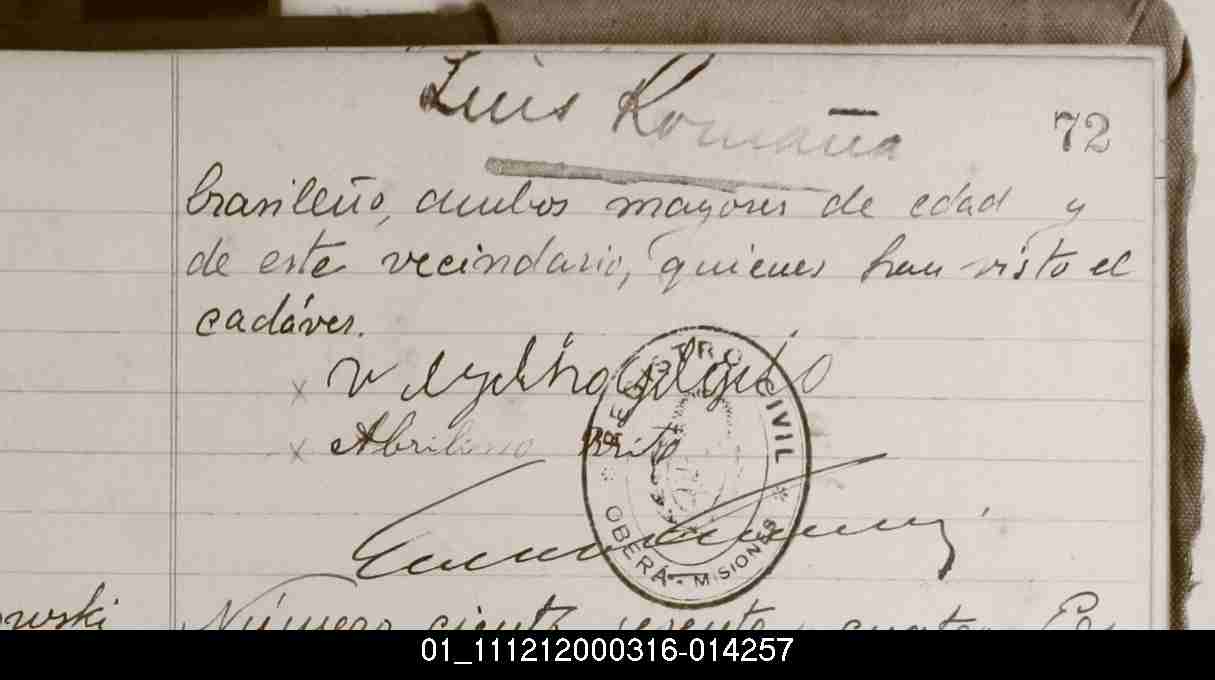 Luis Romaña
72
brasileño, ambos mayores de edad y
de este vecindario, quienes han visto el
cadáver.
x
x Abrilino Brito
REGISTRO CIVIL
OBERÁ - MISIONES
owski Número ciento sesenta y cuatro. En
01_111212000316-014257